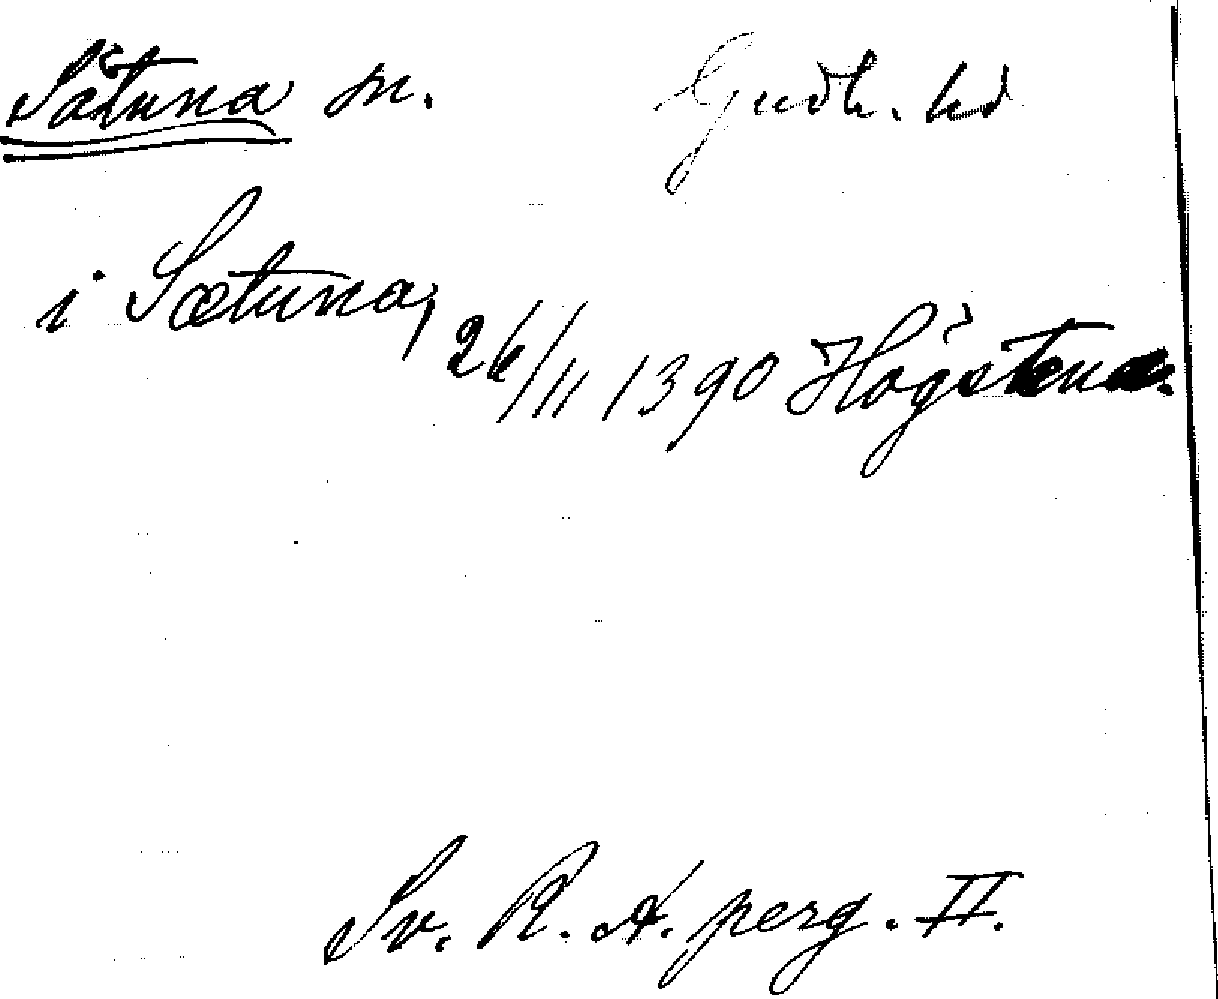 Sätuna sn. Gudh. hd
i Sætuna, 26/11 1390 Högstena.
Sv. R. A. perg. II.